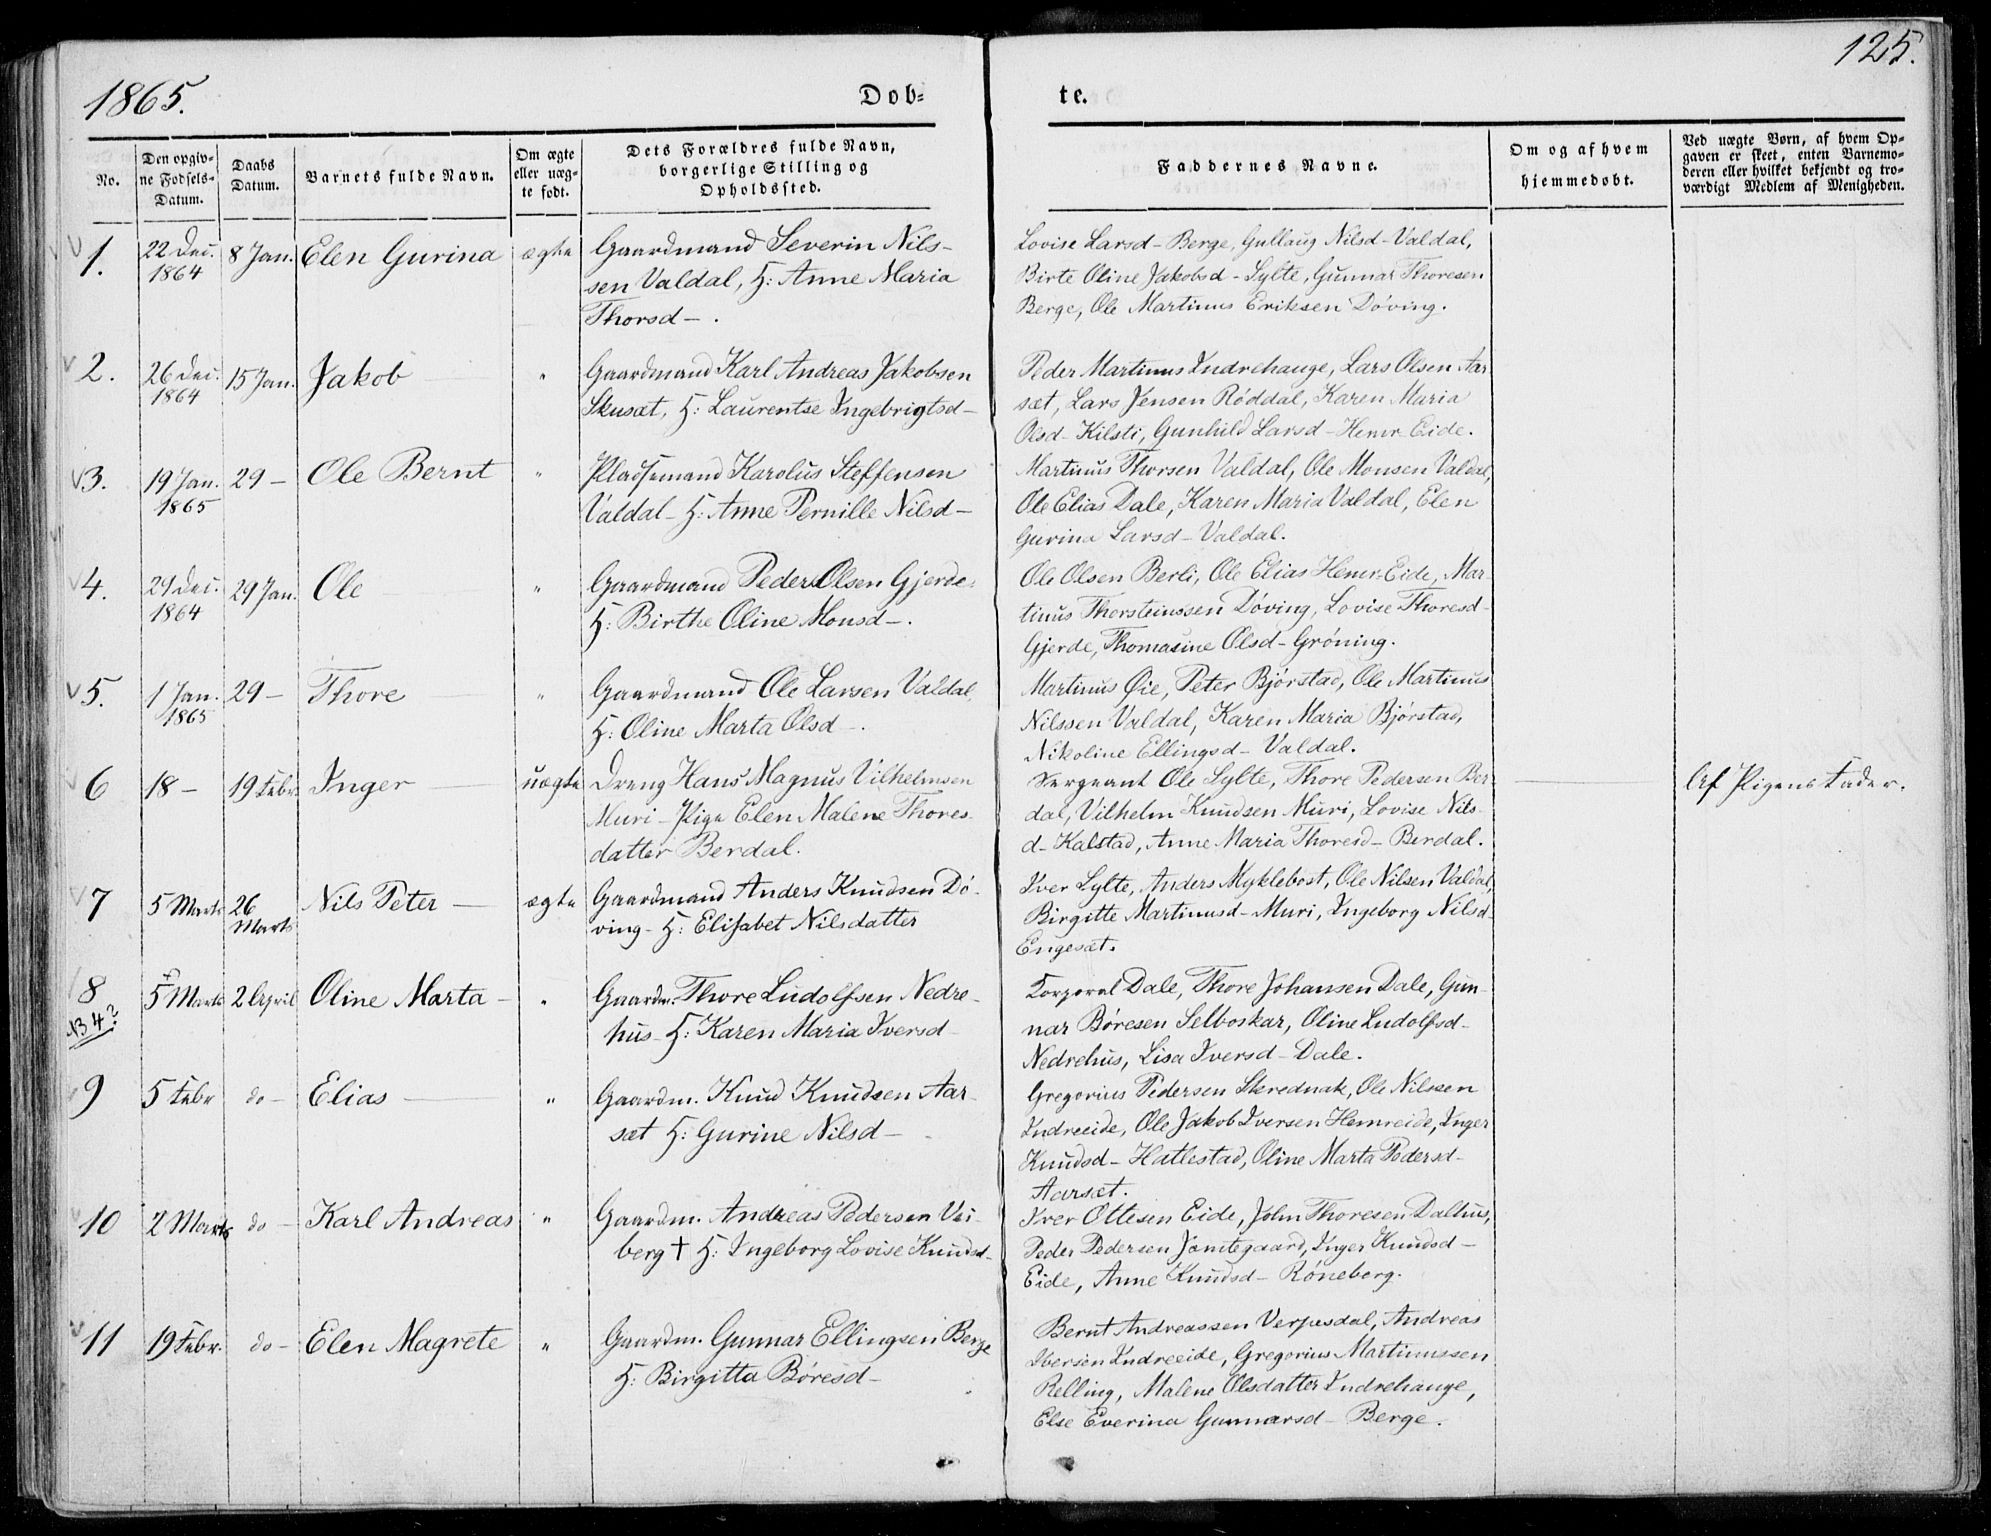 1865.
Døb-
te.
125.
No.
Den opgiv-
ne Fødsels-
Datum.
Daabs
Datum.
Barnets fulde Navn.
Om ægte
eller uæg-
te født.
Dets Forældres fulde Navn,
borgerlige Stilling og
Opholdssted.
Faddernes Navne.
Om og af hvem
hjemmedøbt.
Ved uægte Børn, af hvem Op-
gaven er skeet, enten Barnemo-
deren eller hvilket bekjendt og tro-
værdigt Medlem af Menigheden.
1. 22 Dec. 1864 8 Jan. Elen Gurina ægte
Gaardmand Severin Nils-
sen Valdal, H: Anne Maria
Thorsd- .
Lovise Larsd- Berge, Gullaug Nilsd- Valdal,
Birte Oline Jakobsd- Sylte, Gunnar Thoresen
Berge, Ole Martinus Eriksen Døving.
2. 26 Dec. 1864 15 Jan. Jakob "
Gaardmand Karl Andreas Jakobsen
Skusæt, H: Laurentse Ingebrigtsd-
Peder Martinus Indrehauge, Lars Olsen Aar
sæt, Lars Jensen Røddal, Karen Maria
Olsd- Kilsti, Gunhild Larsd- Hemr-Eide.
3. 19 Jan. 1865 29 - Ole Bernt "
Pladsemand Karolus Steffensen
Valdal- H: Anne Pernille Nilsd-
Martinus Thorsen Valdal, Ole Monsen Valdal,
Ole Elias Dale, Karen Maria Valdal, Elen
Gurina Larsd- Valdal.
4. 29 Dec. 1864 29 Jan. Ole "
Gaardmand Peder Olsen Gjerde-
H: Birthe Oline Monsd-.
Ole Olsen Berli, Ole Elias Hemr-Eide, Mar-
tinus Thorsteinssen Døving, Lovise Thoresd-
Gjerde, Thomasine Olsd- Grøning.
5. 1 Jan. 1865 29 - Thore "
Gaardmand Ole Larsen Valdal,
H: Oline Marta Olsd-.
Martinus Øie, Peter Bjørstad, Ole Martinus
Nilssen Valdal, Karen Maria Bjørstad,
Nikoline Ellingsd- Valdal.
6 18 - 19 Febr. Inger uægte
Dreng Hans Magnus Vilhelmsen
Muri- Pige Elen Malene Thores-
datter Berdal.
Sergeant Ole Sylte, Thore Pedersen Ber-
dal, Vilhelm Knudsen Muri, Lovise Nils-
d- Kalstad, Anne Maria Thoresd- Berdal.
Af Pigens Fader.
7 5 Marts 26 Marts Nils Peter ægte
Gaardmand Anders Knudsen Dø-
ving- H: Elisabet Nilsdatter
Iver Sylte, Anders Myklebost, Ole Nilsen Valdal,
Birgitte Martinusd- Muri, Ingeborg Nilsd-
Engesæt.
8 5 Marts 2 April Oline Marta "
Gaardm. Thore Ludolfsen Nedre-
hus- H: Karen Maria Iversd-
Korporal Dale, Thore Johansen Dale, Gun-
nar Børesen Selboskar, Oline Ludolfsd-
Nedrehus, Lisa Iversd- Dale.
9 5 Febr do - Elias "
Gaardm. Knud Knudsen Aar-
sæt H: Gurine Nilsd-
Gregorius Pedersen Skrednak, Ole Nilssen
Indreeide, Ole Jakob Iversen Hemreide, Inger
Knudsd- Hatlestad, Oline Marta Pedersd-
Aarsæt.
10 2 Marts do - Karl Andreas "
Gaardm. Andreas Pedersen Vei-
berg † H: Ingeborg Lovise Knudsd-
Iver Ottesen Eide, John Thoresen Dalhus,
Peder Pedersen Jamtegaard, Inger Knudsd-
Eide, Anne Knudsd- Røneberg.
11 19 Febr. do - Elen Magrete "
Gaardm. Gunnar Ellingsen Berge
H: Birgitta Børesd-
Bernt Andreassen Verpesdal, Andreas
Ibersen Indreeide, Gregorius Martinussen
Relling, Malene Olsdatter Indrehauge,
Else Everina Gunnarsd- Berge.